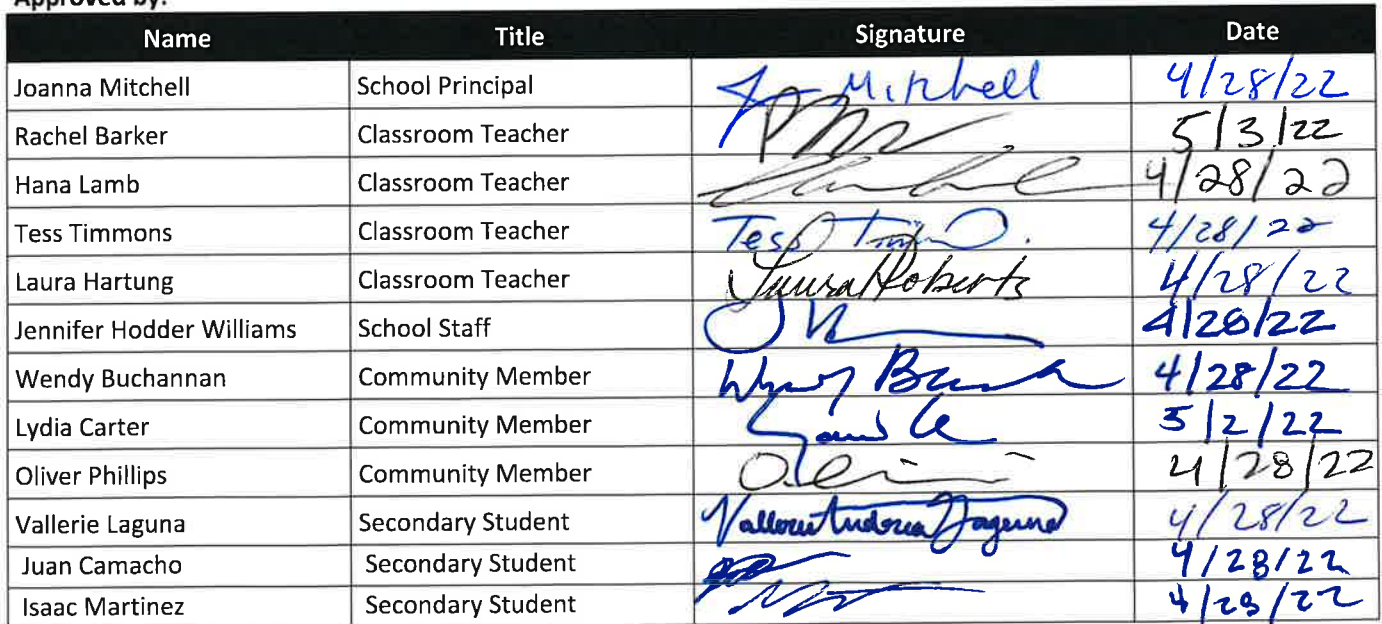 Approved by:
Name Title Signature Date
Joanna Mitchell School Principal J Mitchell 4/28/22
Rachel Barker Classroom Teacher 5/3/22
Hana Lamb Classroom Teacher 4/28/22
Tess Timmons Classroom Teacher Tess 4/28/22
Laura Hartung Classroom Teacher Laura Roberts 4/28/22
Jennifer Hodder Williams School Staff 4/28/22
Wendy Buchannan Community Member 4/28/22
Lydia Carter Community Member 5/2/22
Oliver Phillips Community Member 4/28/22
Vallerie Laguna Secondary Student Vallerie Andrea Laguna 4/28/22
Juan Camacho Secondary Student 4/28/22
Isaac Martinez Secondary Student 4/28/22